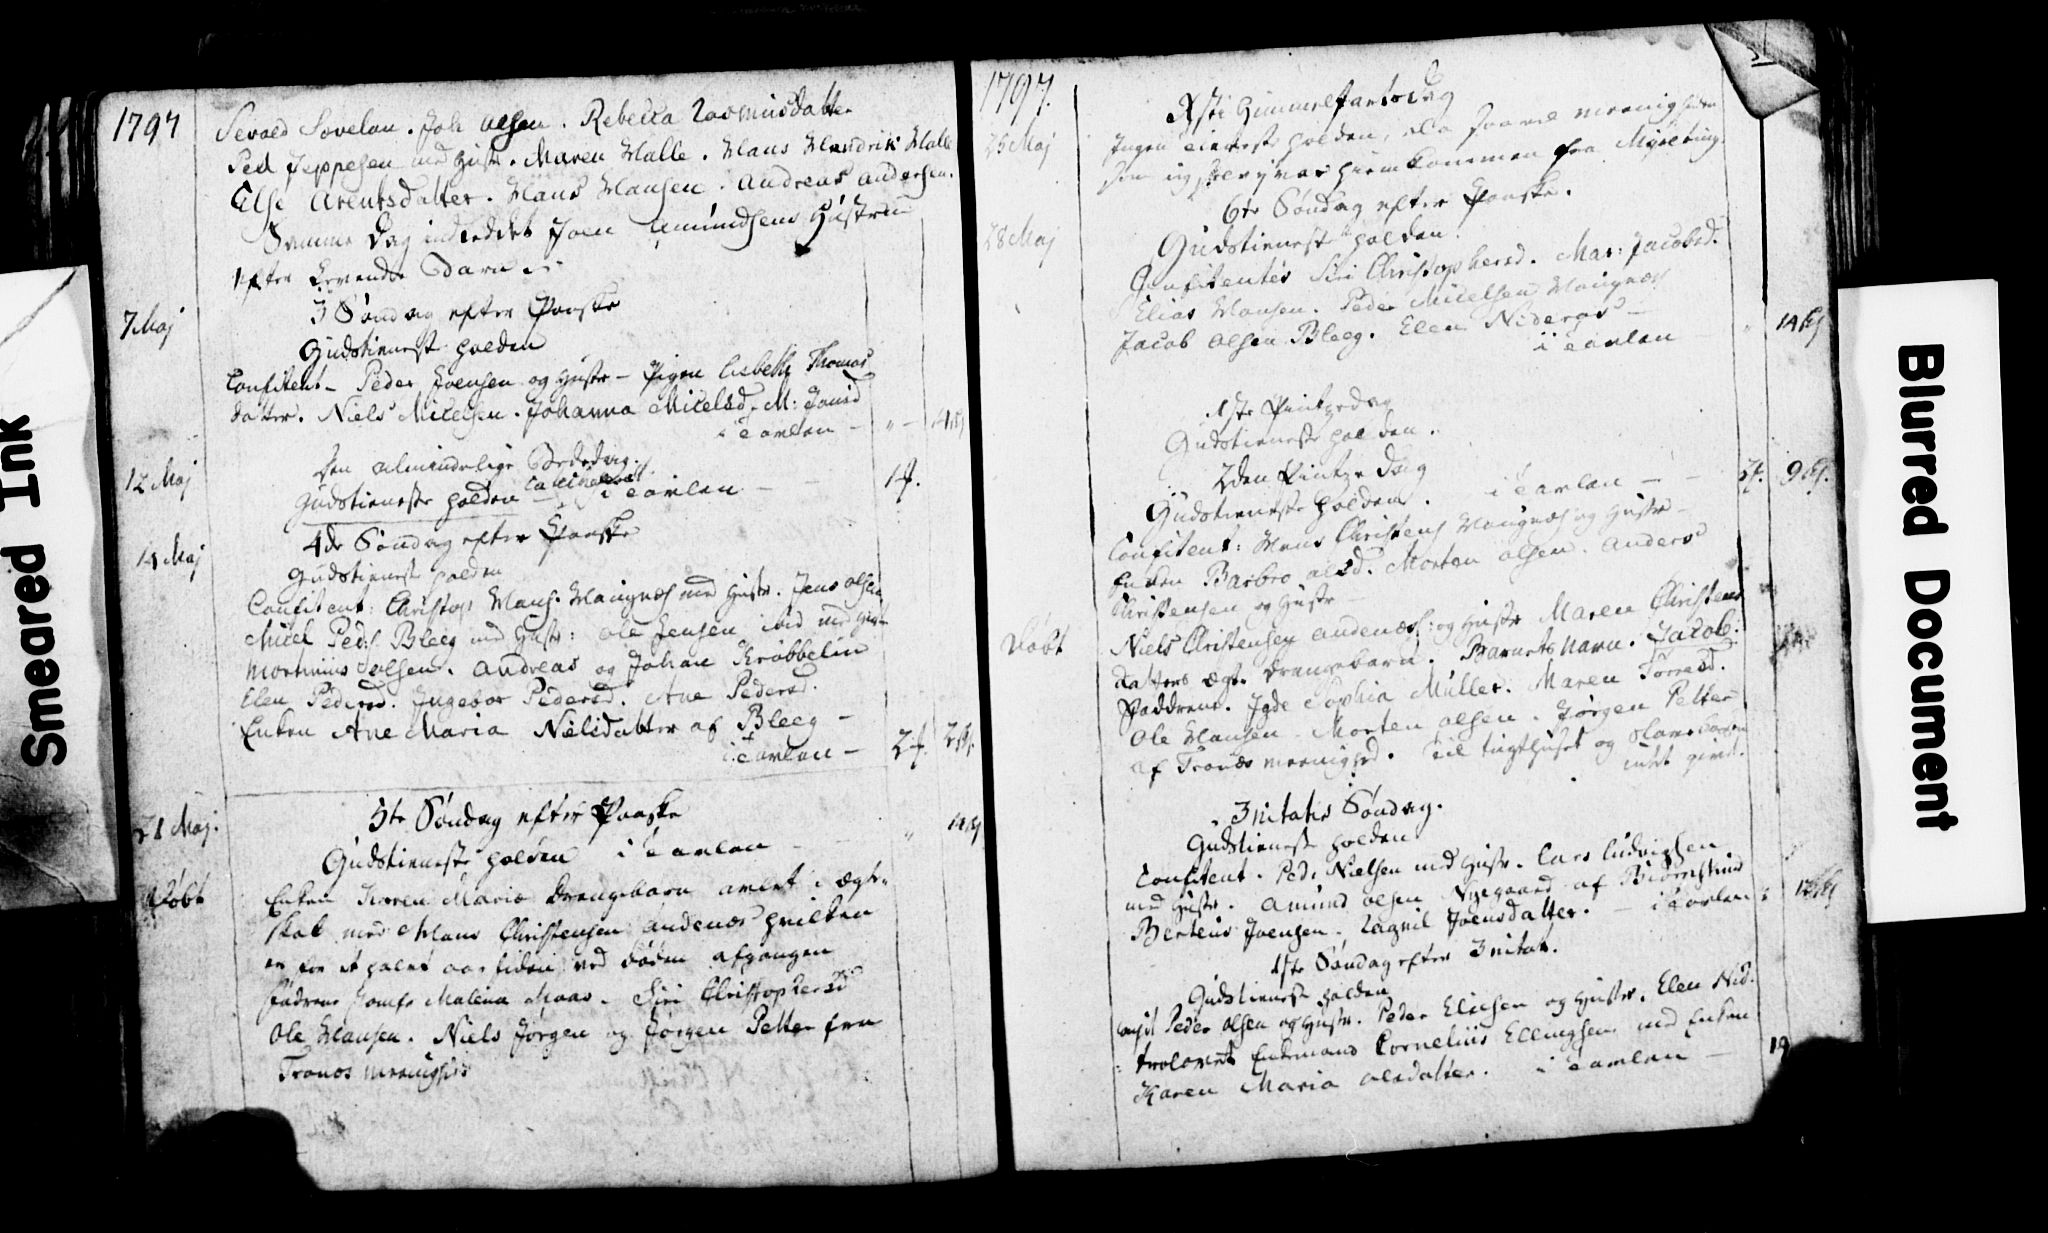 1797
Sevald Sovelau. Joh Olsen. Rebecca Rasmusdatter
Ped Jeppesen med Hustr. Maren Halle. Hans Hendrik Halle
Else Arentsdatter. Hans Hansen. Andreas Andersen.
Samme Dag indleddes Joen Amundsens Hustrue
efter Barn
7 Maj
3 Søndag efter Paaske
Gudstieneste holden
Confitent – Peder Joensen og Hustr – Pigen Lisbeth Thomas
datter. Niels Micelsen. Johanna Micelsd. M:
i Tavlen – 4 ß
12 Maj
Den almindelige Bededag.
Gudstieneste holden – i Tavlen – 1 f.
14 Maj
4de Søndag efter Paaske
Gudstieneste holden
Confitent: Christop Hans. Haugnæs med Hustr. Jens Olsen
Micel Peds. Bleeg med Hustr: Ole Jensen ibid med Hustr
Mortinus Olsen. Andreas og Johan Krøbbelin
Elen Pedersd. Ingebor Pedersd. Ane Pedersd.
Enken Ane Maria Nielsdatter af Bleeg –
i Tavlen – 2 f. 2 ß.
21 Maj.
5te Søndag efter Paaske
Gudstieneste holden i Tavlen – 14 ß
Døbt
Enken Karen Maria Drengebarn avlet i Ægte-
skab med Hans Christensen Andenæs hvilken
er for et halvt aar siden ved Døden afgangen
Fadrene Jomfr Malena Maas. Siri Christophersd
Ole Hansen. Niels Jørgen og Jørgen Petter fra
Tranøs Menighed
1797.
25 Maj
Xsti Himmelfartsdag
Ingen Tieneste holden, da saavel Menigheden
som ieg selv var hiemkommen fra Myreting.
28 Maj
6te Søndag efter Paaske.
Gudstieneste holden.
Confitentes Siri Christophersd. Mar: Jacobsd.
Elias Hansen. Peder Micelsen Haugnæs
Jacob Olsen Bleeg. Elen Nideros –
i Tavlen – 14 ß
1ste Pintzedag
Gudstieneste holden.
2den Pintze Dag
Gudstieneste holden. i Tavlen – 9 ß.
Confitent: Hans Christens Haugnæs og Hustr –
Enken Barbro Olsd. Morten Olsen. Anders
Christensen og Hustr –
Døbt
Niels Christensen Andenæs: og Hustr Maren Christens
datters ægte Drengebarn. Barnets Navn. Jacob.
Faddrene. Sophia Müller. Maren Torresd.
Ole Hansen. Morten Olsen. Jørgen Petter
af Tranøs Menighed. Til Tugthuset og
intet givet.
Trinitatis Søndag.
Gudstieneste holden
Confitent. Ped. Nielsen med Hustr. Lars Ludvigsen
med Hustr. Amund Olsen Nygaard af
Berteus Joensen. Ragnil Joensdatter. – i Tavlen 12 ß
1ste Søndag efter Trinitat.
Gudstieneste holden
Confit Peder Olsen og Hustr. Peder Eliesen og Hustr. Elen Nid.
trolovet Enkemand Cornelius Ellingsen med Enken
Karen Maria Olsdatter. i Tavlen – 19
Smeared Ink
Blurred Document